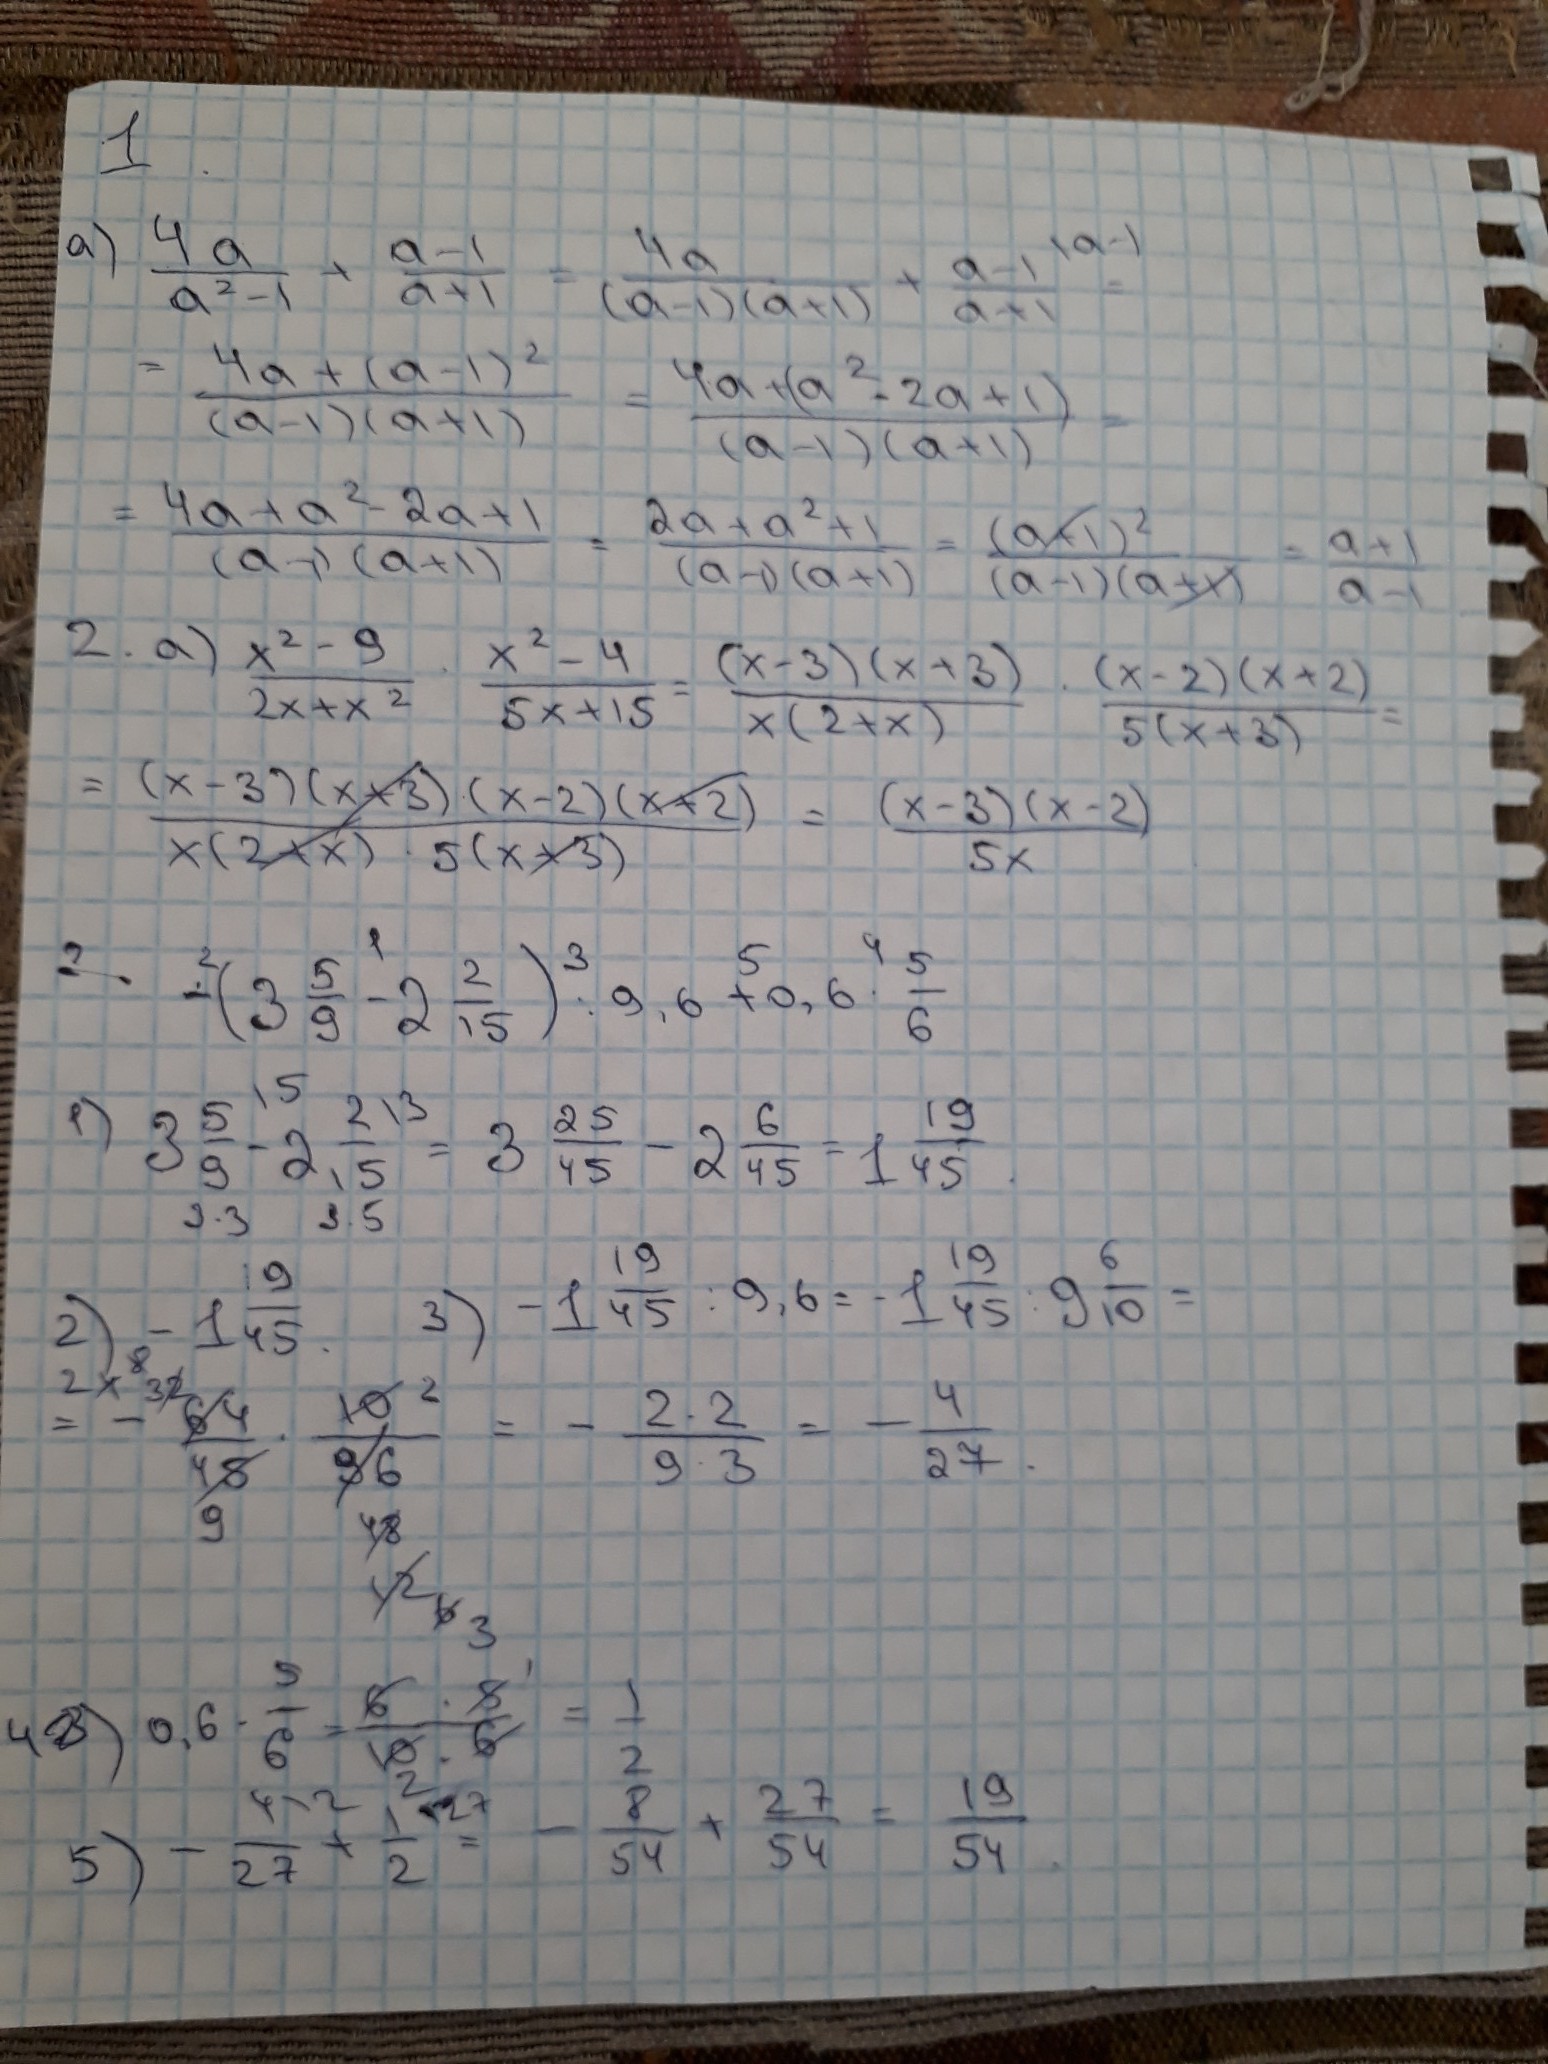 1.
a) 4a/(a²-1) + (a-1)/(a+1) = 4a/((a-1)(a+1)) + (a-1)/(a+1) \a-1 =
= (4a+(a-1)²)/((a-1)(a+1)) = (4a+(a²-2a+1))/((a-1)(a+1)) =
= (4a+a²-2a+1)/((a-1)(a+1)) = (2a+a²+1)/((a-1)(a+1)) = (a+1)²/((a-1)(a+1)) = (a+1)/(a-1)
2. a) (x²-9)/(2x+x²) · (x²-4)/(5x+15) = ((x-3)(x+3))/(x(2+x)) · ((x-2)(x+2))/(5(x+3)) =
= ((x-3)(x+3)·(x-2)(x+2))/(x(2+x)·5(x+3)) = ((x-3)(x-2))/(5x)
2 1 3 5 4
-(3 5/9 - 2 2/15) : 9,6 + 0,6 · 5/6
1) 3 5/9 \5 - 2 2/15 \3 = 3 25/45 - 2 6/45 = 1 19/45.
3·3 3·5
2) -1 19/45. 3) -1 19/45 : 9,6 = -1 19/45 : 9 6/10 =
2 8 32
= - 64/45 · 10/96 2 = - (2·2)/(9·3) = - 4/27.
9 48
12 6 3
4) 0,6 · 5/6 = (6·5)/(10·6) 1 = 1/2
2
5) - 4/27 \2 + 1/2 \27 = - 8/54 + 27/54 = 19/54.